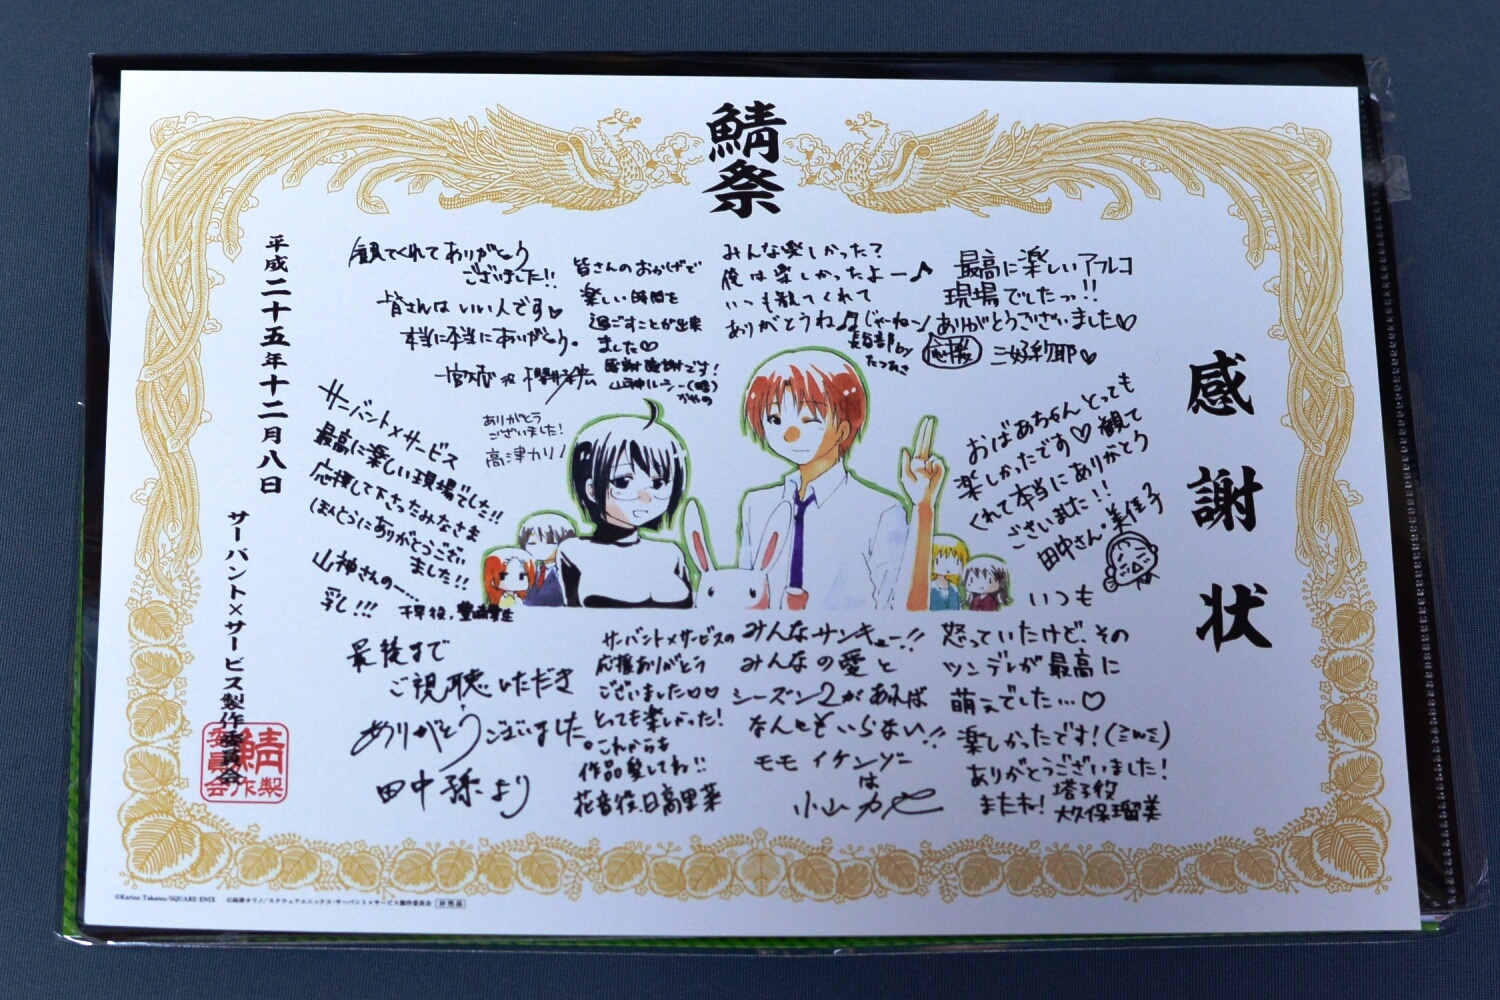 鯖祭
感謝状
最高に楽しいアフレコ
現場でしたっ!!
ありがとうございました♡
三好紗耶♥
みんな楽しかった?
俺は楽しかったよー♪
いつも観てくれて
ありがとうね♫じゃねーン
長谷部by
たつひさ
皆さんのおかげで
楽しい時間を
過ごすことが出来
ました♡
感謝感謝です!
山神ルーシー(略)
かやの
観てくれてありがとう
ございました!!
皆さんはいい人です♥
本当に本当にありがとう。
一宮大志役
おばあちゃんとっても
楽しかったです♡観て
くれて本当にありがとう
ございました!!
田中さん・美佳子
ありがとう
ございました!
高津カリノ
サーバント×サービス
最高に楽しい現場でした!!
応援して下さったみなさま
ほんとうにありがとうござい
ました!!
山神さんの…
乳し!!!
千早役,豊崎愛生
いつも
怒っていたけど、その
ツンデレが最高に
萌えでした…♡
楽しかったです!(ミωミ)
ありがとうございました!
またね!
塔子役
大久保瑠美
みんなサンキュー!!
みんなの愛と
シーズン2があれば
なんもいらない!!
モモイケンゾー
は
小山力也
サーバント×サービスの
応援ありがとう
ございました♡♡
とっても楽しかった!
これからも
作品愛してね!!
花音役、日高里菜
最後まで
ご視聴いただき
ありがとうございました。
田中孫より
平成二十五年十二月八日
サーバント×サービス製作委員会
鯖製作委員会
©Karino Takatsu/SQUARE ENIX ©高津カリノ/スクウェアエニックス・サーバント×サービス製作委員会 非売品